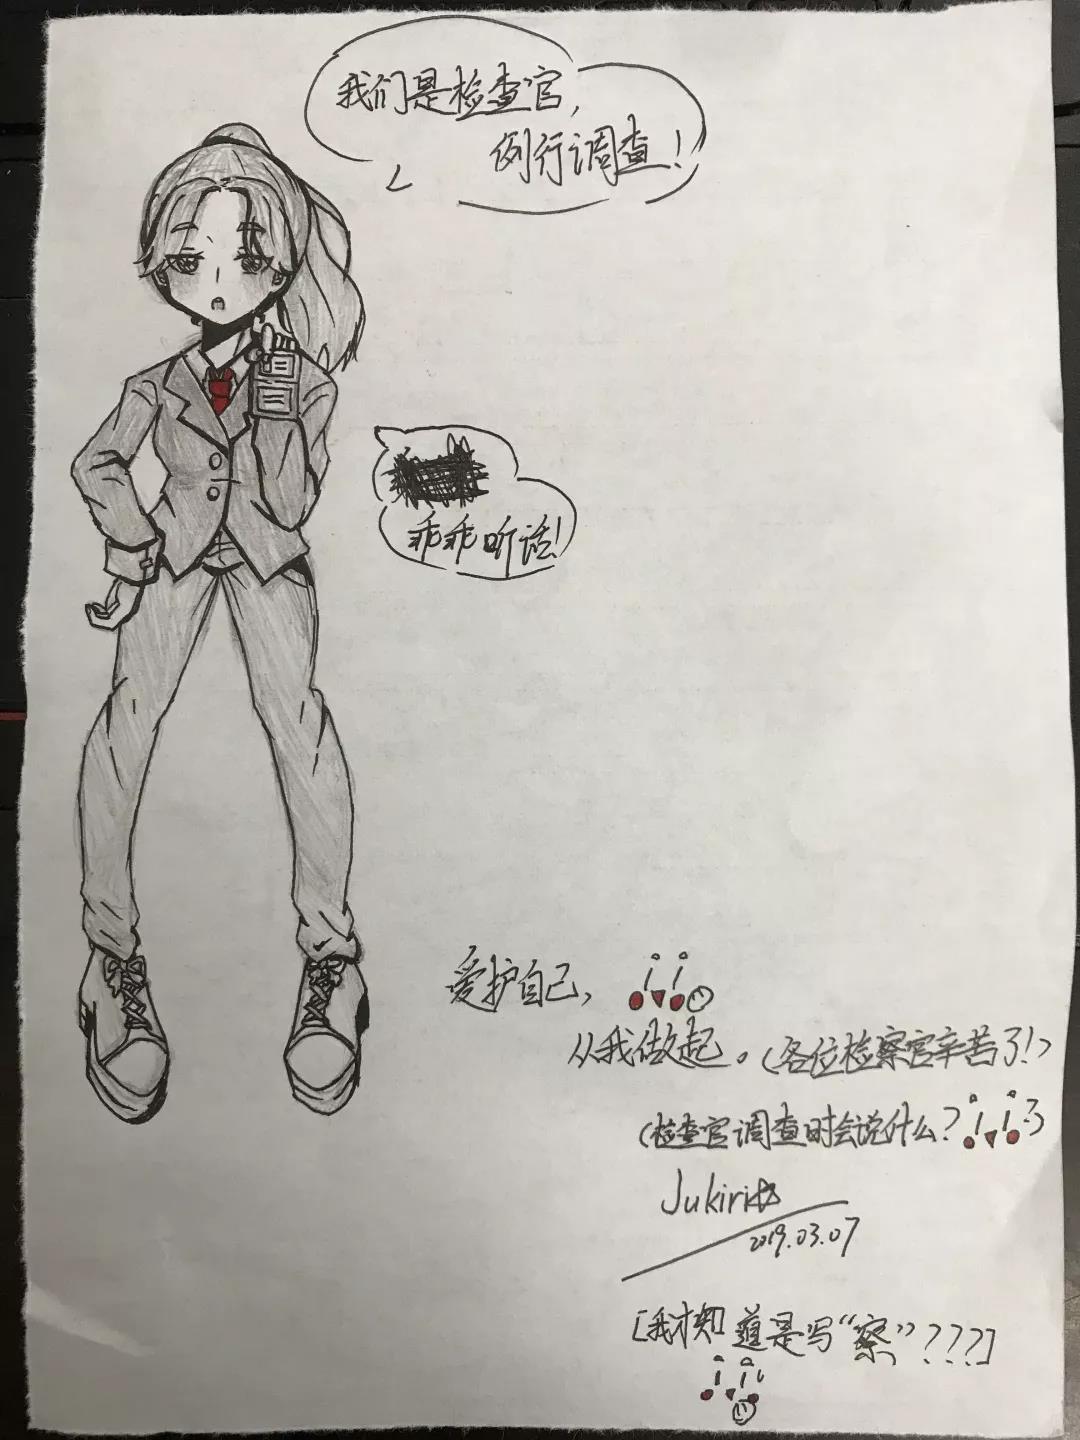 我们是检查官,
例行调查!
乖乖听话!
爱护自己,
从我做起。(各位检察官辛苦了!)
(检查官调查时会说什么?
Jukiri
2019.03.07
[我才知道是写“察”???]